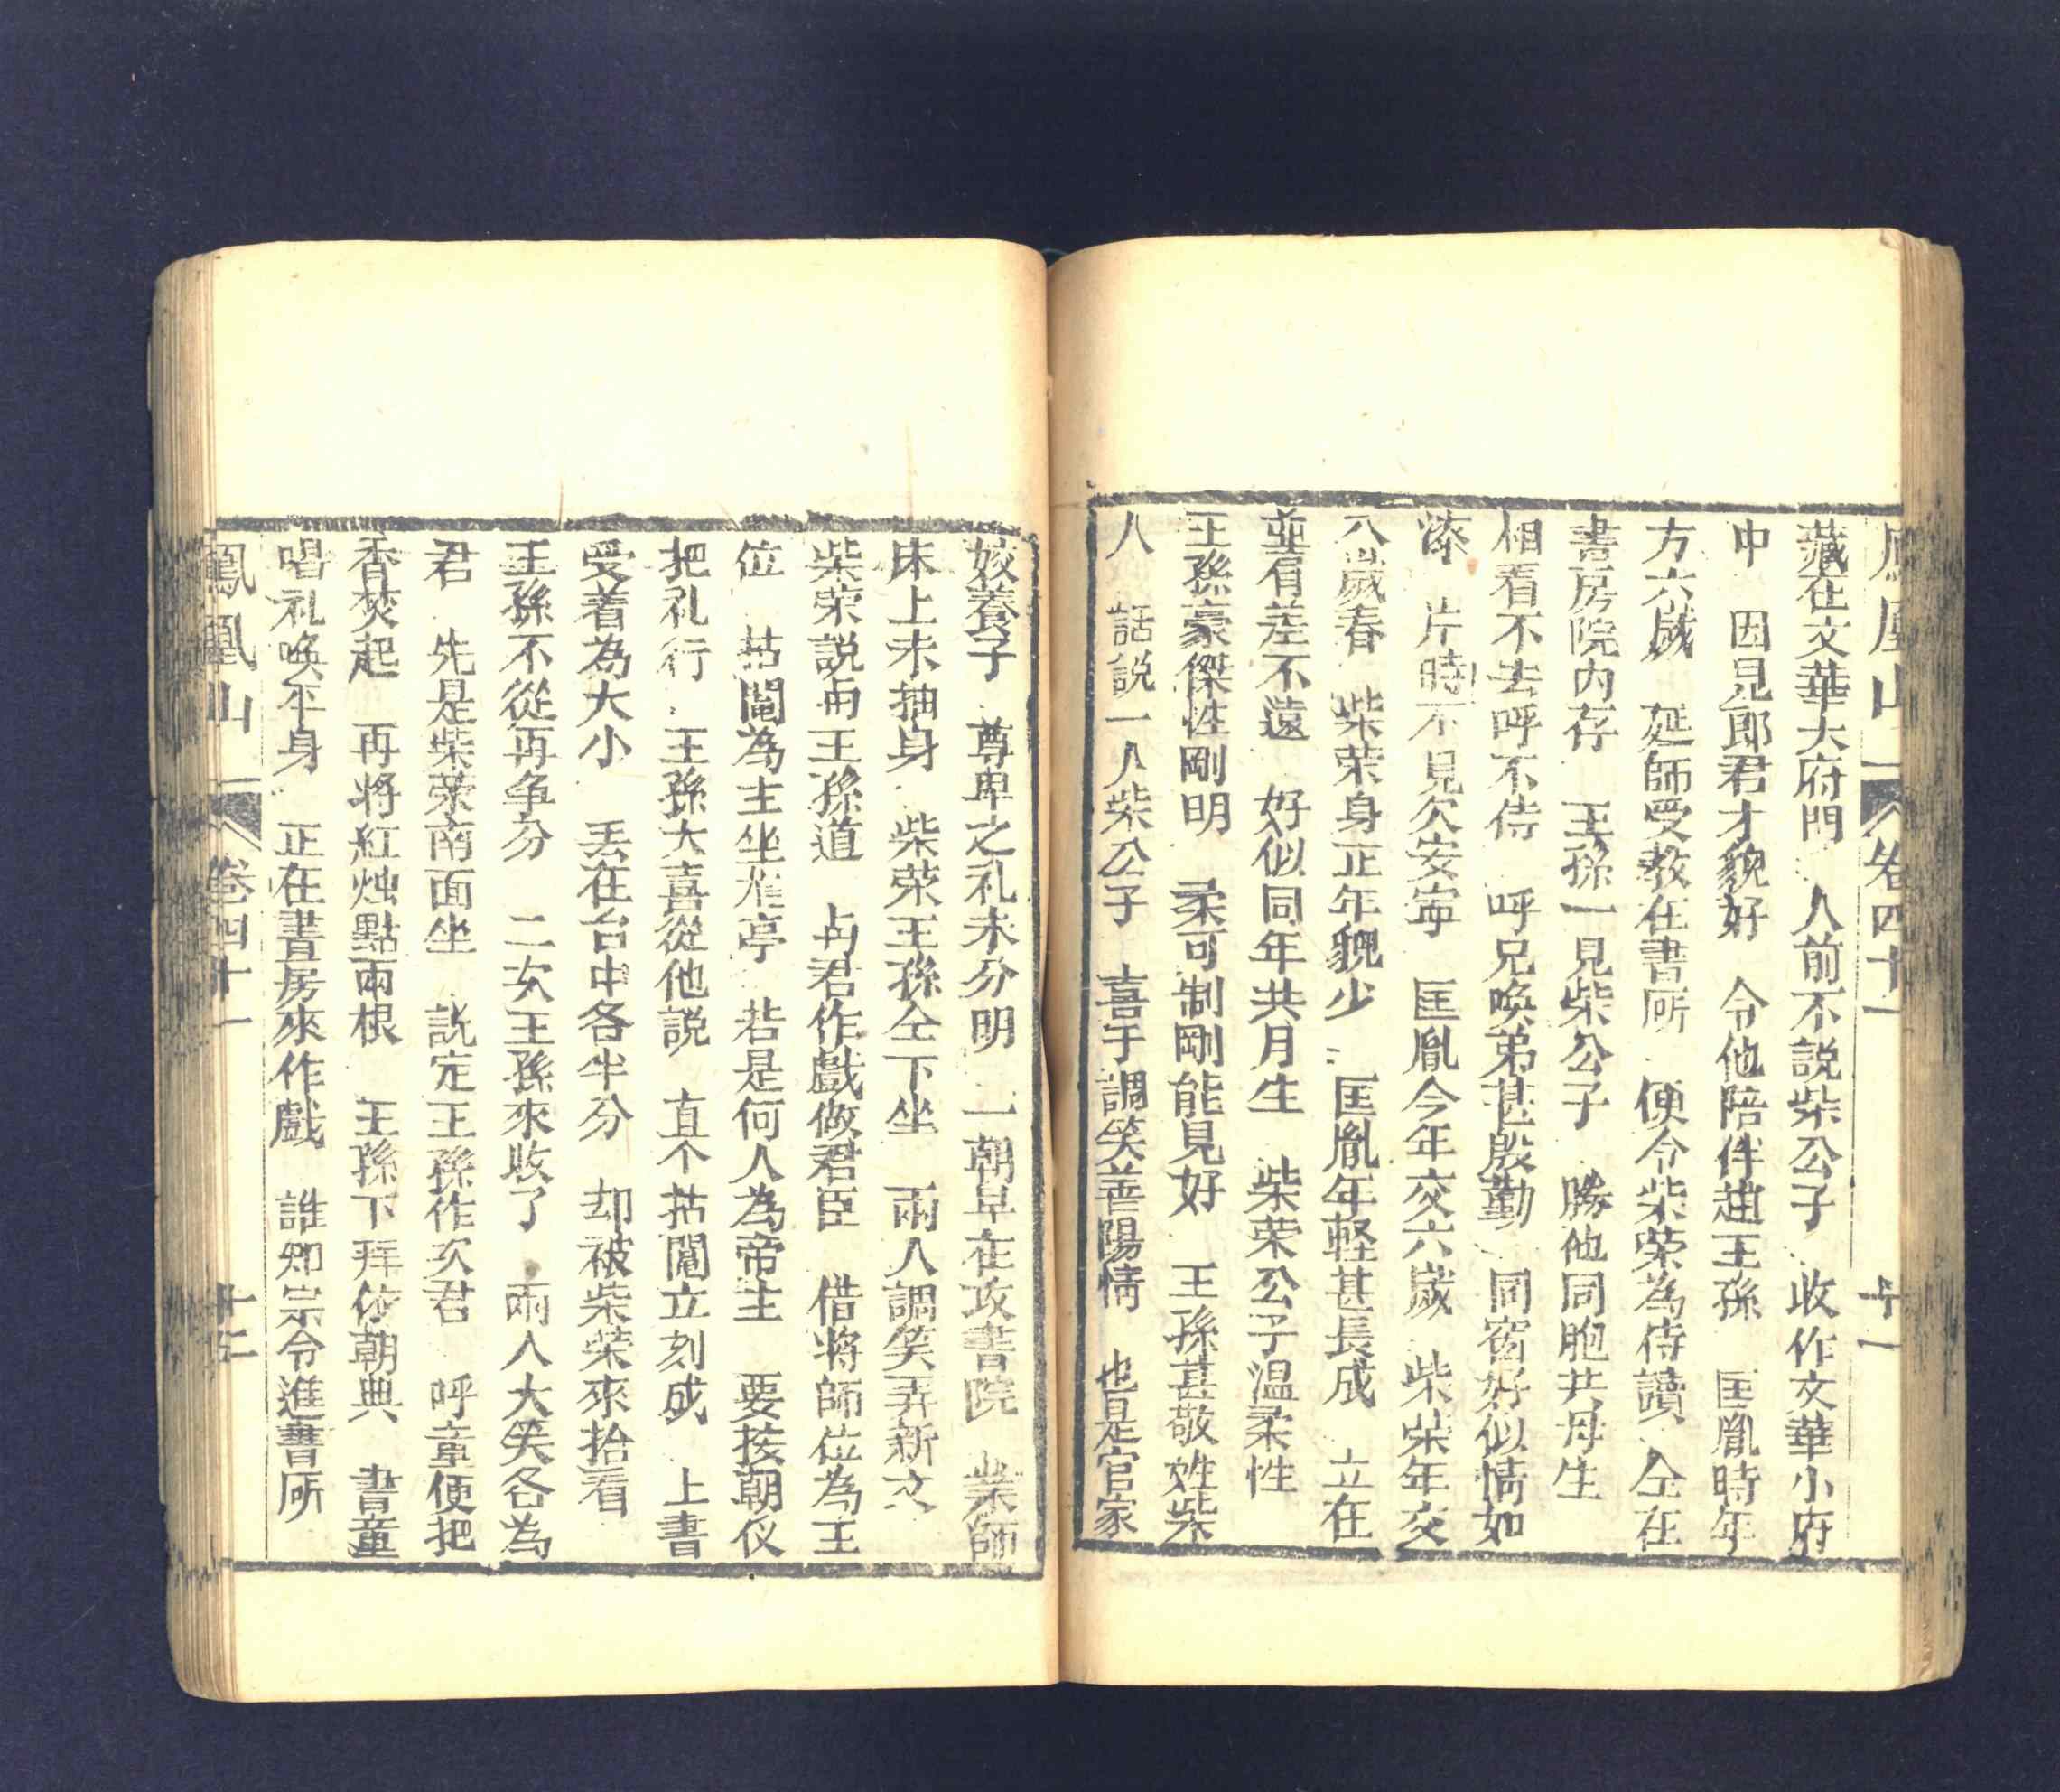 鳳凰山 卷四十一 十一
藏在文華大府門 人前不説柴公子 收作文華小府
中 因見郎君才貌好 令他陪伴趙王孫 匡胤時年
方六歲 延師受教在書所 便令柴荣為侍讀 仝在
書房院内存 王孫一見柴公子 勝他同胞共母生
相看不去呼不侍 呼兄喚弟甚殷勤 同窗好似情如
漆 片時不見欠安寜 匡胤今年交六歲 柴柴年交
八歲春 柴荣身正年貌少 匡胤年軽甚長成 立在
並肩差不遠 好似同年共月生 柴荣公子温柔性
王孫豪傑性剛明 柔可制剛能見好 王孫甚敬姓柴
人 話説一人柴公子 喜于調笑善陽情 也是官家
姣養子 尊卑之礼未分明 一朝早在攻書院 業師
床上未抽身 柴荣王孫仝下坐 兩人調笑弄新文
柴荣説向王孫道 与君作戲做君臣 借將師位為王
位 拈鬮為主坐龍亭 若是何人為帝主 要按朝仪
把礼行 王孫大喜從他説 直个拈鬮立刻成 上書
受着為大小 丢在台中各半分 却被柴荣來拾看
王孫不從再争分 二次王孫來收了 兩人大笑各為
君 先是柴荣南面坐 説定王孫作次君 呼童便把
香焚起 再将紅烛點兩根 王孫下拜依朝典 書童
唱礼喚平身 正在書房來作戲 誰知宗令進書所
鳳凰山 卷四十一 十二